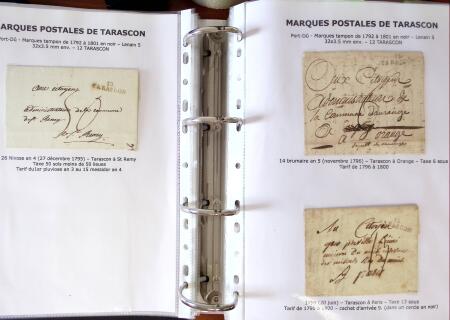 MARQUES POSTALES DE TARASCON
Port-Dû - Marques tampon de 1792 à 1801 en noir - Lenain 5
32x3.5 mm env. - 12 TARASCON
12
TARASCON
aux citoyens
administrateurs
St Remy
26 Nivose an 4 (27 décembre 1795) - Tarascon à St Remy
Taxe 50 sols moins de 50 lieues
Tarif du 1er pluviose an 3 au 15 messidor an 4
MARQUES POSTALES DE TARASCON
Port-Dû - Marques tampon de 1792 à 1801 en noir - Lenain 5
32x3.5 mm env. - 12 TARASCON
Aux Citoyens
Administrateurs de
la Commune d'orange
à orange
14 brumaire an 5 (novembre 1796) - Tarascon à Orange - Taxe 6 sous
Tarif de 1796 à 1800
TARASCON
Au Citoyen
à paris
1799 (20 juin) - Tarascon à Paris - Taxe 13 sous
Tarif de 1796 à 1800 - cachet d'arrivée 9. (dans un cercle en noir)